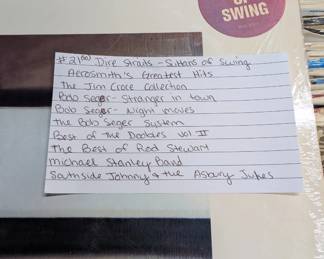 OF
SWING
#21⁰⁰ Dire Straits - Sultans of Swing
Aerosmith's Greatest Hits
The Jim Croce Collection
Bob Seger - Stranger in town
Bob Seger - Night moves
The Bob Seger System
Best of The Doobies Vol II
The Best of Rod Stewart
Michael Stanley Band
Southside Johnny & the Asbury Jukes